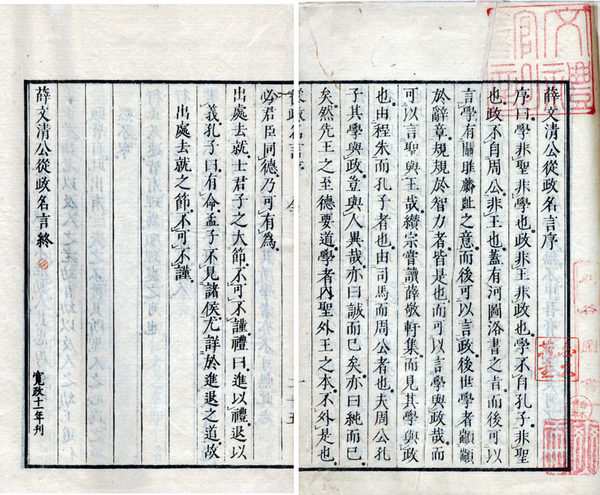 薛文清公從政名言序
序曰學非聖非學也政非王非政也學不自孔子非聖
也政不自周公非王也蓋有河圖洛書之書而後可以
言學有關雎麟趾之意而後可以言政後世學者顓顓
於辭章規規於智力者皆是也而可以言學與政哉而
可以言聖與王哉纘宗嘗讀薛敬軒集而見其學與政
也由程朱而孔子者也由司馬而周公者也夫周公孔
子其學與政豈與人異哉亦曰誠而已矣亦曰純而已
矣然先王之至德要道學者內聖外王之本不外是也
從政名言序
必君臣同德乃可有為
出處去就士君子之大節不可不謹禮曰進以禮退以
義孔子曰有命孟子不見諸侯尤詳於進退之道故
出處去就之節不可不謹
薛文清公從政名言終
寬政十一年刊